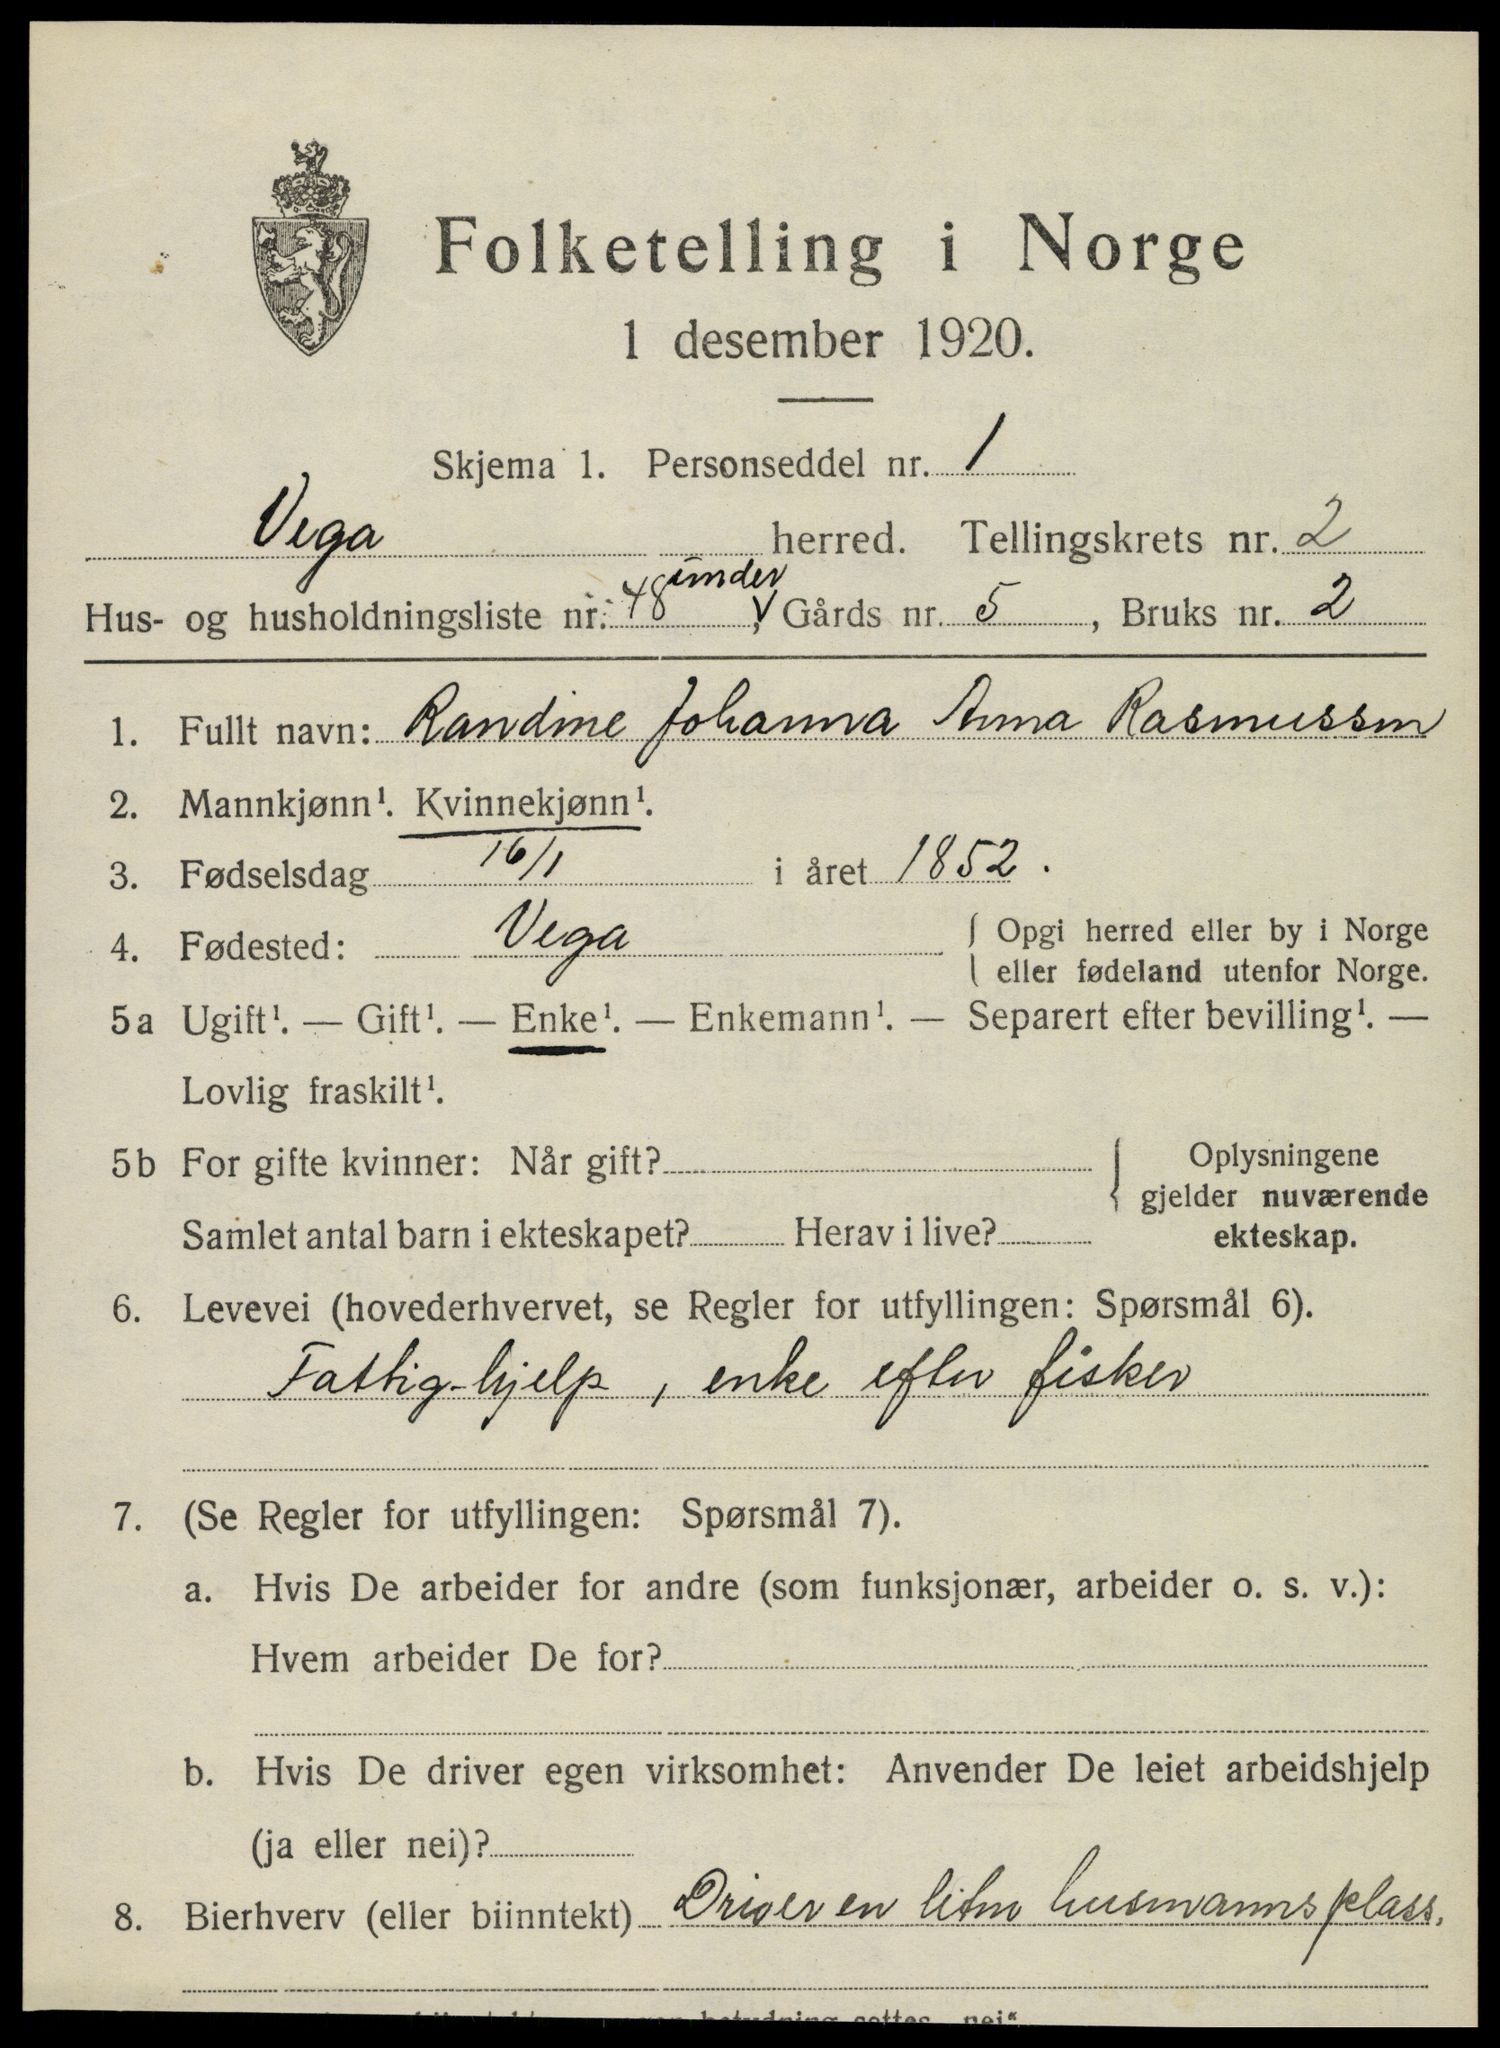 Folketelling i Norge
1 desember 1920.
Skjema 1. Personseddel nr. 1
Vega herred. Tellingskrets nr. 2
under
Hus- og husholdningsliste nr. 48, Gårds nr. 5, Bruks nr. 2
1. Fullt navn: Randine Johanna Anna Rasmussen
2. Mannkjønn¹. Kvinnekjønn¹.
3. Fødselsdag 16/1 i året 1852.
4. Fødested: Vega { Opgi herred eller by i Norge
eller fødeland utenfor Norge.
5a Ugift¹. — Gift¹. — Enke¹. — Enkemann¹. — Separert efter bevilling¹. —
Lovlig fraskilt¹.
5b For gifte kvinner: Når gift? { Oplysningene
gjelder nuværende
Samlet antal barn i ekteskapet? Herav i live? ekteskap.
6. Levevei (hovederhvervet, se Regler for utfyllingen: Spørsmål 6).
Fattig-hjelp, enke efter fisker
7. (Se Regler for utfyllingen: Spørsmål 7).
a. Hvis De arbeider for andre (som funksjonær, arbeider o. s. v.):
Hvem arbeider De for?
b. Hvis De driver egen virksomhet: Anvender De leiet arbeidshjelp
(ja eller nei)?
8. Bierhverv (eller biinntekt) Driver en liten husmannsplass.